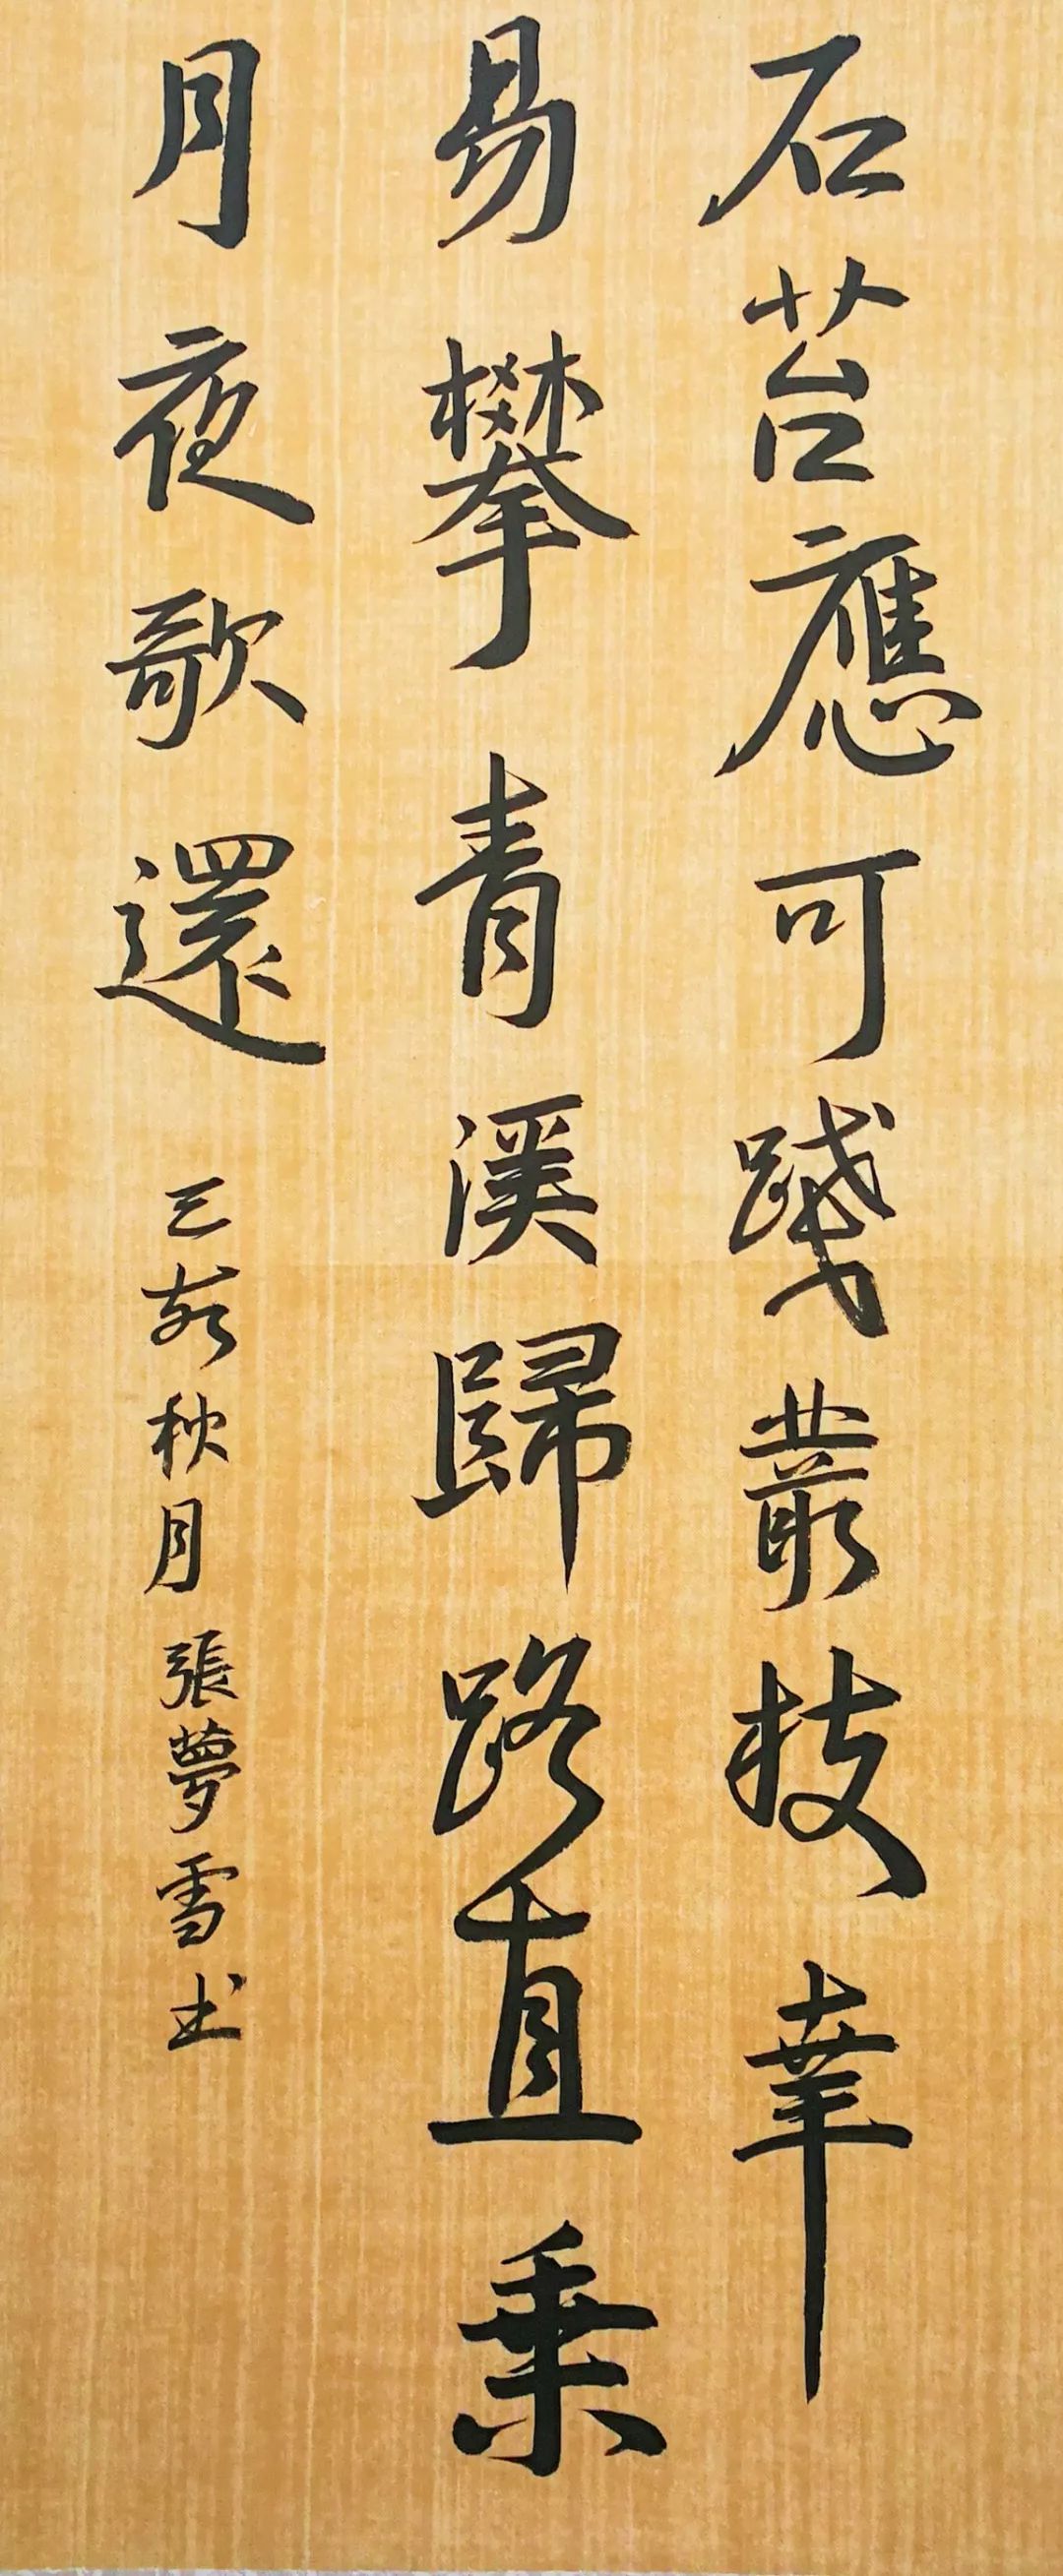 石苔應可踐叢枝幸
易攀青溪歸路直乘
月夜歌還 己亥秋月 張夢雪书